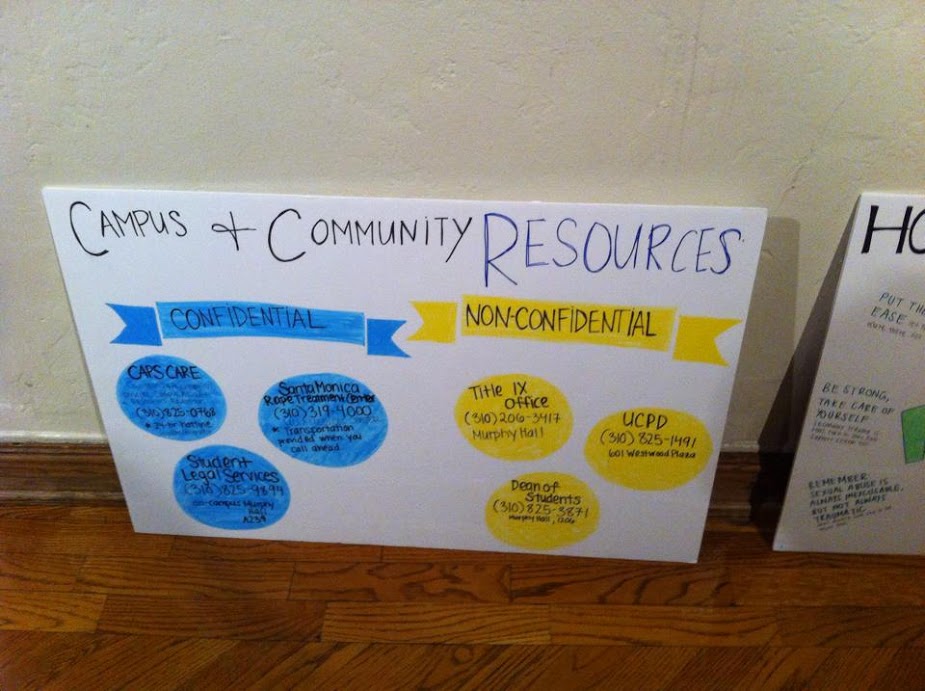 CAMPUS + COMMUNITY RESOURCES
CONFIDENTIAL
CAPS CARE
(310)825-0768
* 24-hr hotline
Santa Monica
Rape Treatment Center
(310)319-4000
* Transportation
provided when you
call ahead
Student
Legal Services
(310)825-9894
on-campus Murphy
Hall
A239
NON-CONFIDENTIAL
Title IX
Office
(310)206-3417
Murphy Hall
UCPD
(310) 825-1491
601 Westwood Plaza
Dean of
Students
(310)825-3871
Murphy Hall, 1206
HO
PUT THE
EASE
BE STRONG,
TAKE CARE OF
YOURSELF
REMEMBER
SEXUAL ABUSE IS
ALWAYS INEXCUSABLE,
BUT NOT ALWAYS
TRAUMATIC.